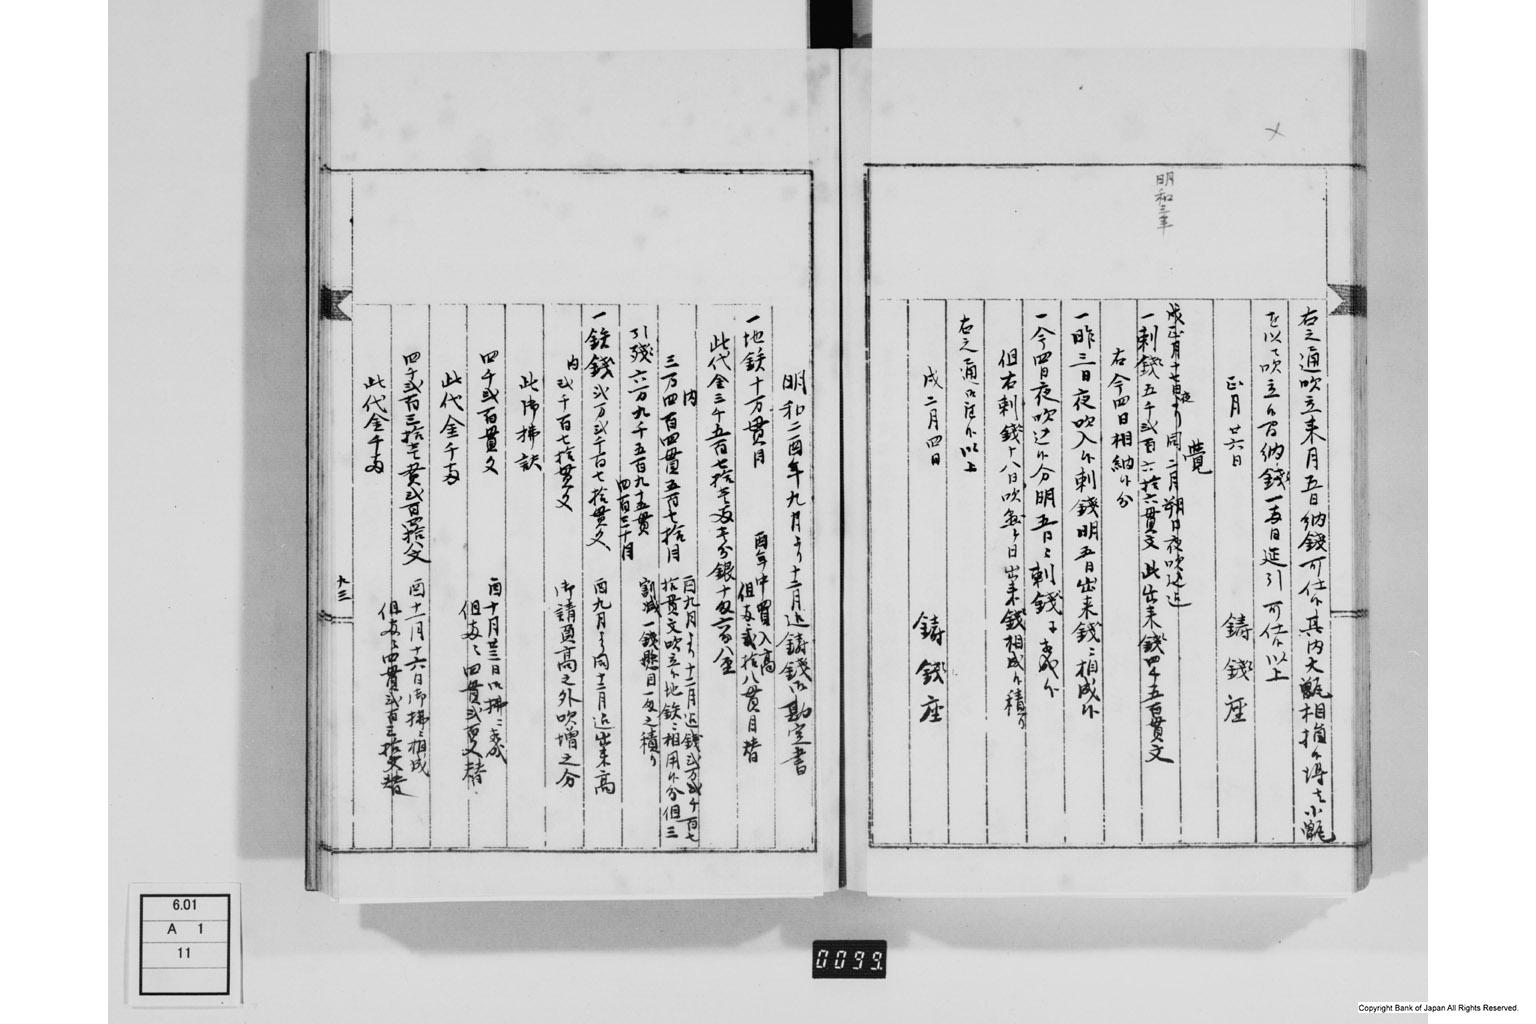 明和三年
右之通吹立来月五日納銭可仕候其内大甑相損候得は小甑
を以吹立候乃納銭一両日延引可仕候以上
正月廿六日 鋳銭座
覚
戌正月十七日夜より同二月朔日夜吹込迄
一刺銭五千弐百六拾六貫文 此出来銭四千五百貫文
右今四日相納候分
一昨三日夜吹入候刺銭明五日出来銭ニ相成候
一今四日夜吹込候分明五日ニ刺銭ニ相成候
但右刺銭十八日吹 日出来銭相成候積り
右之通御座候以上
戌二月四日 鋳銭座
明和二酉年九月より十二月迄鋳銭御勘定書
一地鉄十万貫目 酉年中買入高
但両弐拾八貫目替
此代金三千五百七拾壱両壱分銀十匁六分八厘
内
三万四百四貫五百七拾目 酉九月より十二月迄銭弐万弐千百七
拾貫文吹立候地鉄ニ相用候分但三
割減一銭懸目一匁之積り
引残六万九千五百九十五貫
四百三十目
一鉄銭弐万弐千百七拾貫文 酉九月より同十二月迄出来高
内
弐千百七拾貫文 御請負高之外吹増之分
此御払訳
四千弐百貫文 酉十月廿三日御払ニ相成
但両ニ四貫弐百文替
此代金千両
四千弐百三拾壱貫弐百四拾文 酉十一月十六日御払ニ相成
但両ニ四貫弐百三拾文替
此代金千両
九三
6.01
A 1
11
0099
Copyright Bank of Japan All Rights Reserved.